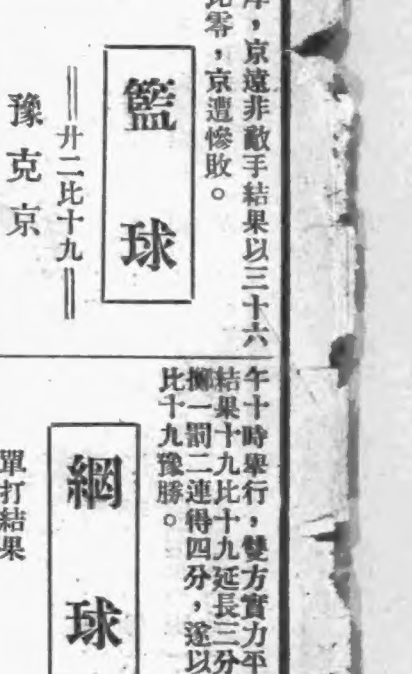 京遠非敵手結果以三十六
比零，京遭慘敗。
籃球
廿二比十九
豫克京
午十時舉行，雙方實力平
結果十九比十九延長三分
擲一罰二連得四分，遂以
比十九豫勝。
網球
單打結果